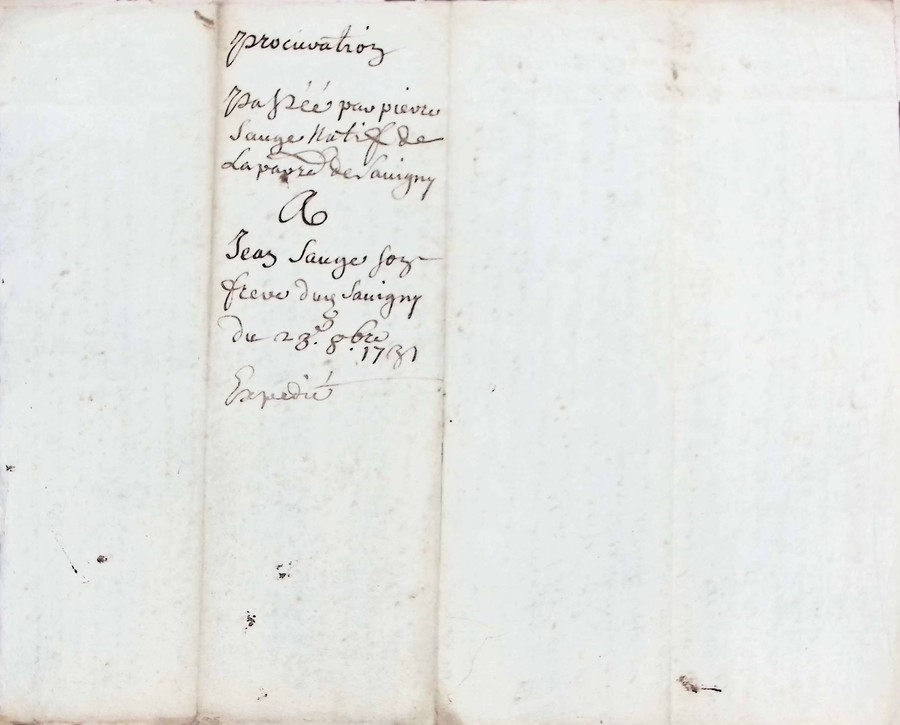 procuration
passéé par pierre
Sauge Natif de
La parre de Savigny
A
Jean Sauge son
frere dud Savigny
du 23e. 8bre
1731
Expedié